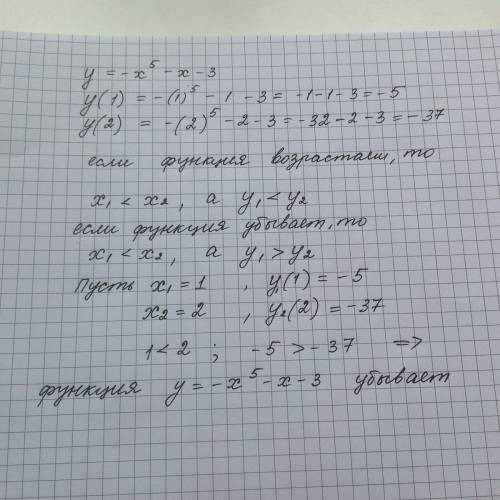 y = -x⁵ - x - 3
y(1) = -(1)⁵ - 1 - 3 = -1-1-3 = -5
y(2) = -(2)⁵ - 2 - 3 = -32 - 2 - 3 = -37
если функция возрастали, то
x₁ < x₂, а y₁ < y₂
если функция убывает, то
x₁ < x₂, а y₁ > y₂
Пусть x₁ = 1, y₁(1) = -5
x₂ = 2, y₂(2) = -37
1 < 2 ; -5 > -37 =>
функция y = -x⁵ - x - 3 убывает